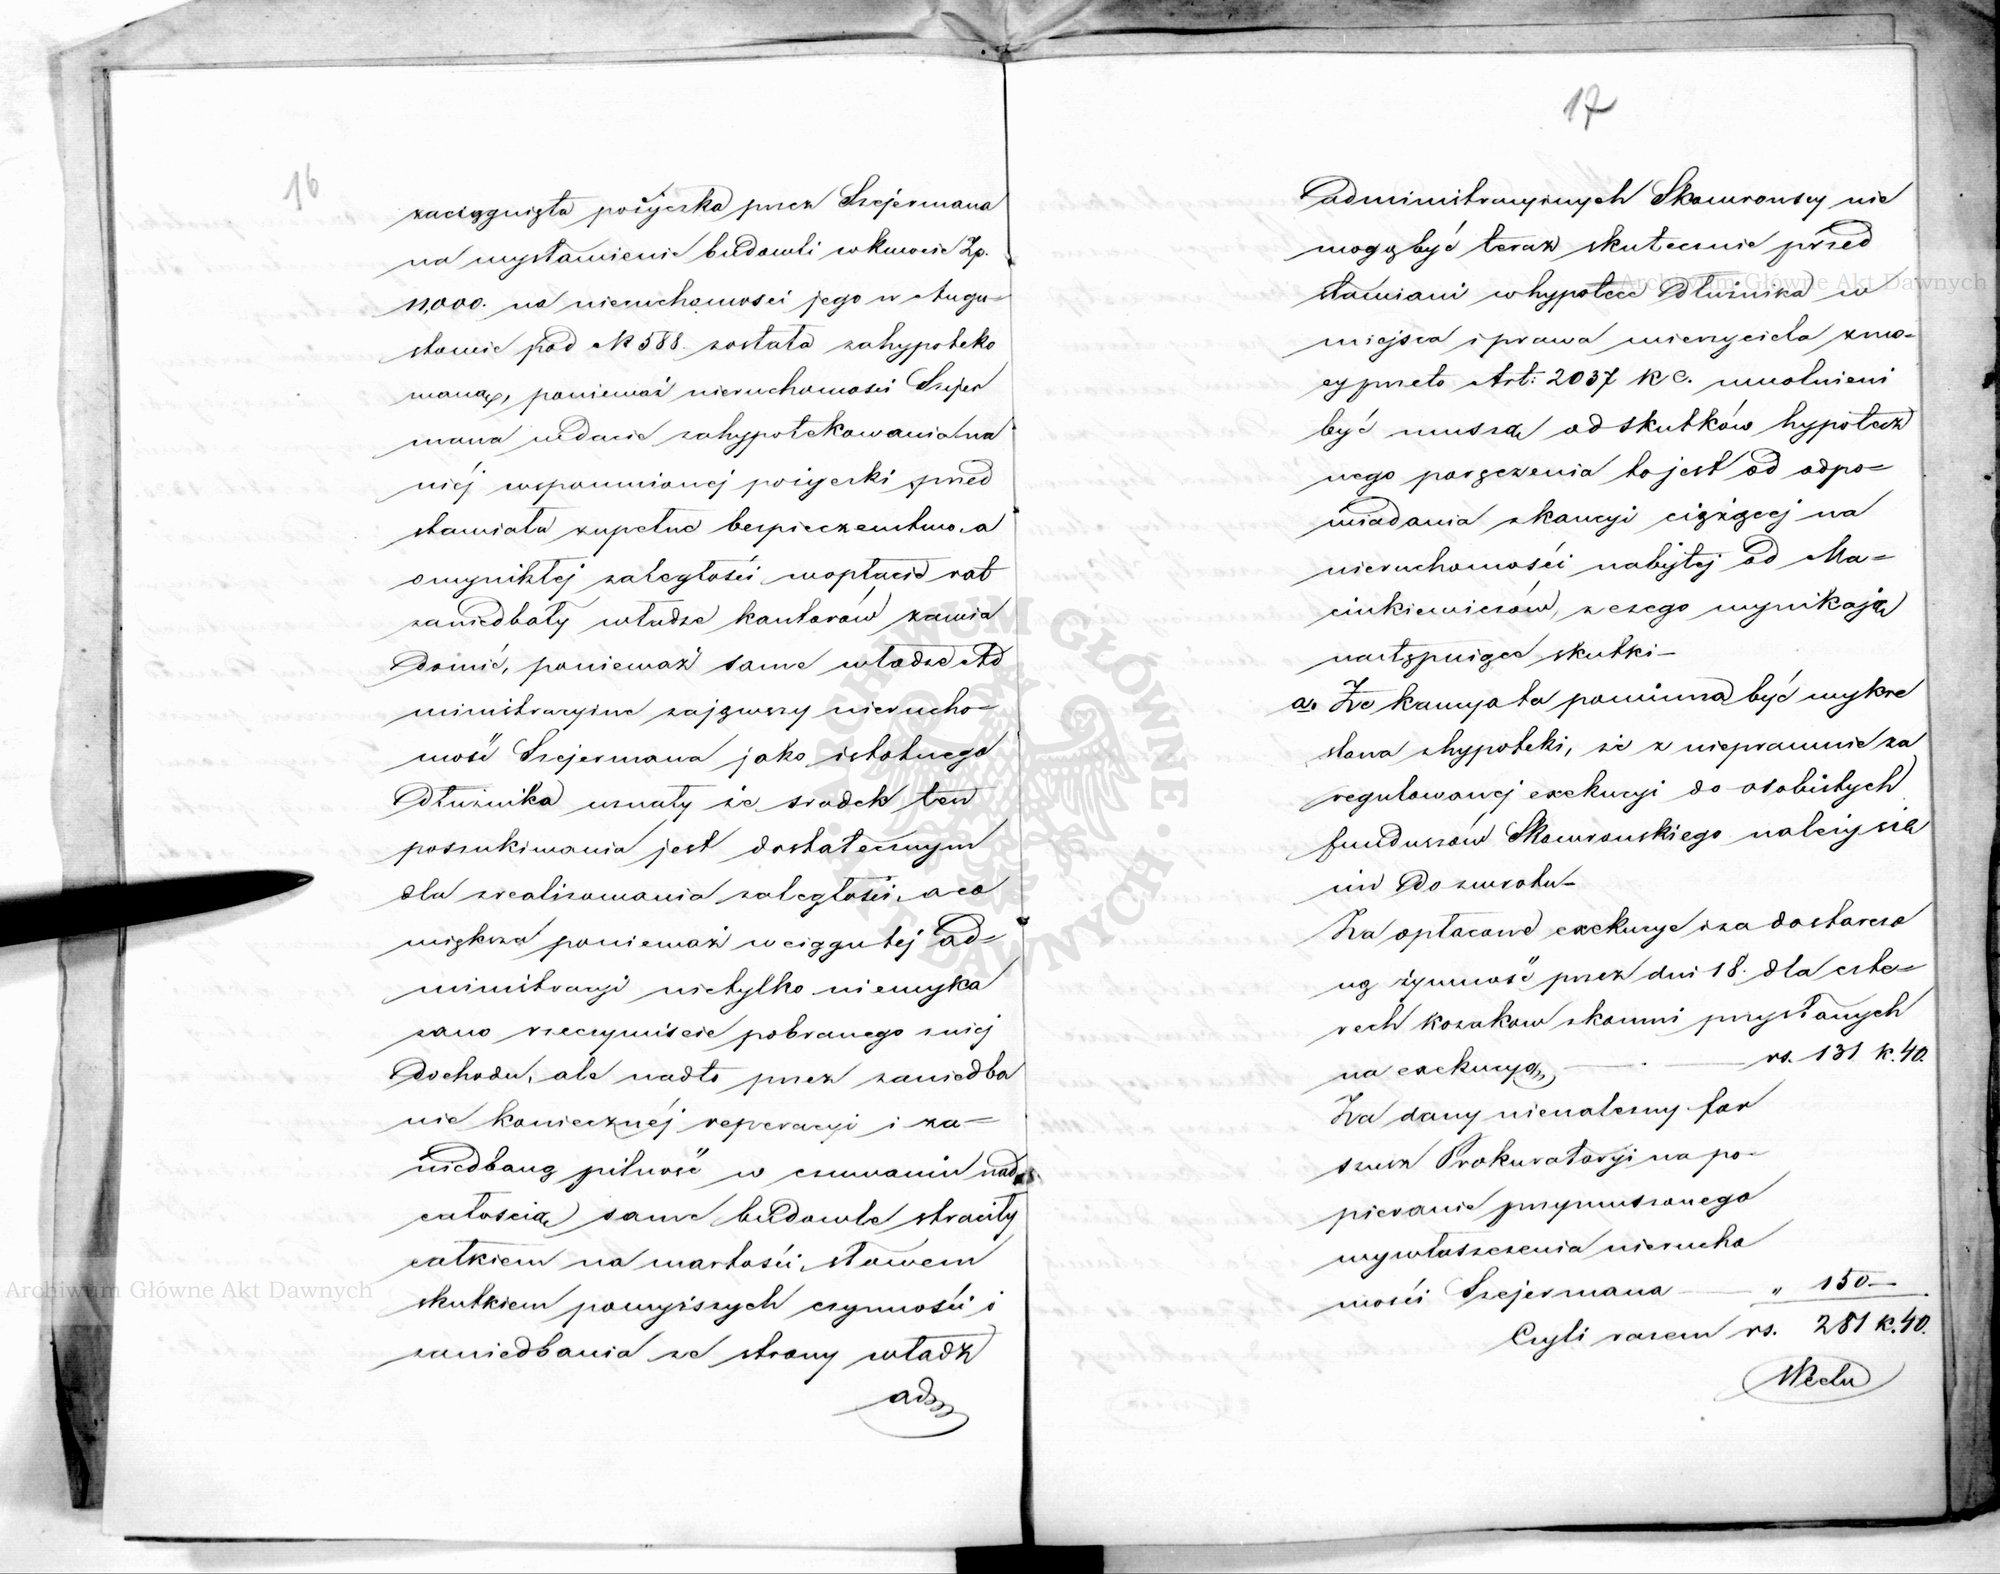 16
zaciągnięta pożyczka przez Szejermana
na wystawienie budowli w kwocie Zp.
11,000. na nieruchomości jego w Augu-
stowie pod № 588. została zahypoteko
waną, ponieważ nieruchomość Szejer
mana w dacie zahypotekowania na
niéj wspomnionej pożyczki przed
stawiała zupełne bezpieczeństwo, a
o wynikłej zaległości w opłacie rat
zaniedbały władze kantorów zawia
domić, ponieważ same władze Ad
ministracyjne zająwszy nierucho-
mość Szejermana jako istotnego
Dłużnika uznały że środek ten
poszukiwania jest dostatecznym
dla zrealizowania zaległości, a co
większa ponieważ w ciągu tej ad-
ministracyi nietylko niewyka
zano rzeczywiście pobranego z niej
Dochodu, ale nadto przez zaniedba
nie koniecznéj reperacyi i za-
niedbaną pilność w czuwaniu nad
całością same budowle straciły
całkiem na wartości, słowem
skutkiem powyższych czynności i
zaniedbania ze strony władz
adm
17
administracyjnych Skowrońscy nie
mogą być teraz skutecznie przed
stawiani w hypotece Dłużnika w
miejsca i prawa wierzyciela z mo-
cy przeto Art: 2037 K C. uwolnieni
być muszą od skutków hypotecz
nego poręczenia to jest od odpo-
wiadania z kaucyi ciążącej na
nieruchomości nabytej od Ma-
cinkiewiczów, z czego wynikają
następujące skutki-
a. Że kaucya ta powinna być wykre
ślona z hypoteki, że z nieprawnie za
regulowanej exekucyi do osobistych
funduszów Skowrońskiego należy się
im Do zwrotu-
Za opłacone exekucye i za dostarczo
ną żywność przez dni 18. dla czte-
rech kozaków z końmi przysłanych
na exekucyą, — . — rs. 131 k. 40.
Za dany nienależny for
szus Prokuratoryi na po-
pieranie przymuszonego
wywłaszczenia nierucho
mości Szejermana — „ 150 —
Czyli razem rs. 281 k. 40.
Wedu
Archiwum Główne Akt Dawnych
Archiwum Główne Akt Dawnych
ARCHIWUM GŁÓWNE AKT DAWNYCH